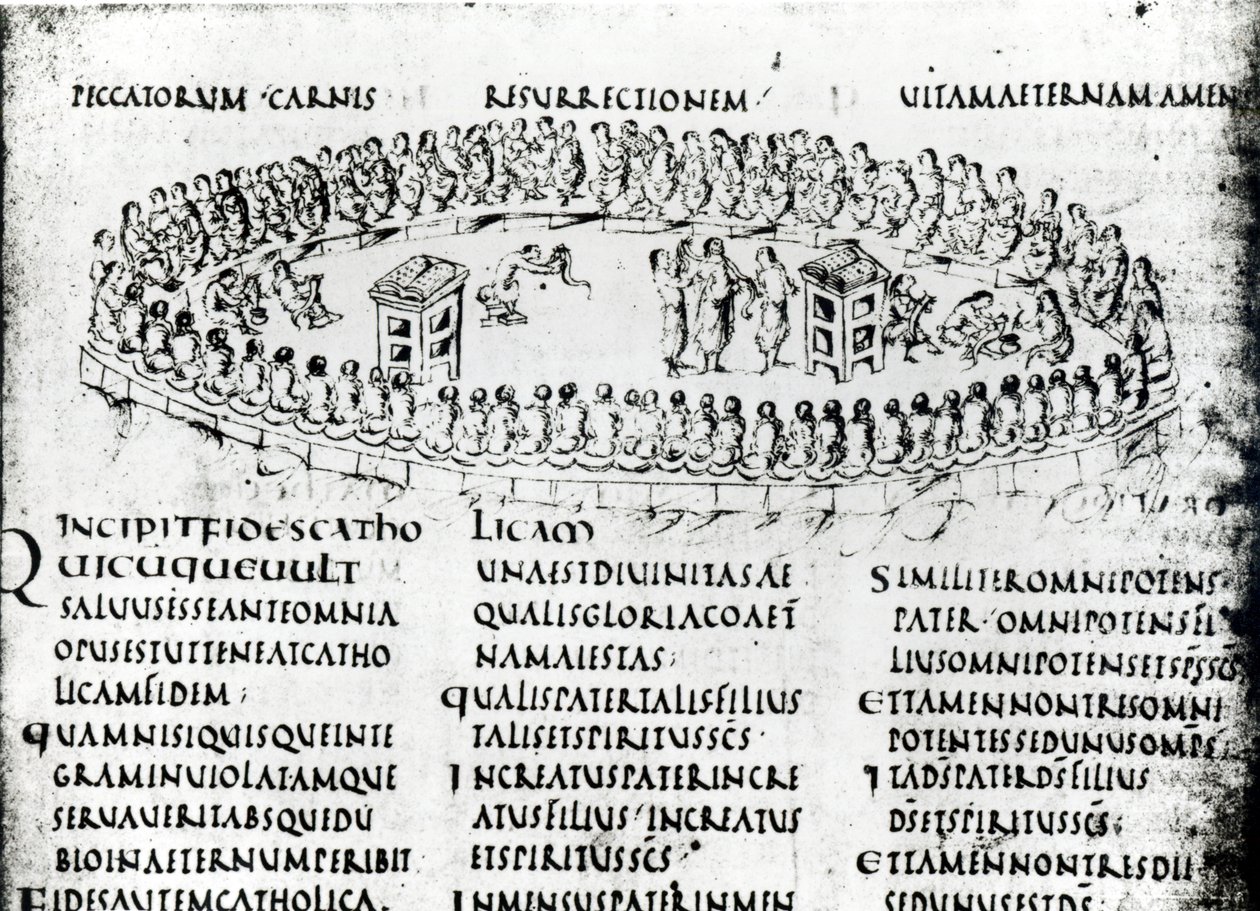 PECCATORUM · CARNIS RESURRECTIONEM · UITAMAETERNAM · AMEN
INCIPITFIDESCATHO LICAM
QUICUQUEUULT
SALUUSESSEANTEOMNIA
OPUSESTUTTENEATCATHO
LICAMFIDEM;
QUAMNISIQUISQUEINTE
GRAMINUIOLATAMQUE
SERUAUERITABSQUEDU
BIOINAETERNUMPERIBIT
FIDESAUTEMCATHOLICA.
UNAESTDIUINITASAE
QUALISGLORIACOAET̄
NAMAIESTAS;
QUALISPATERTALISFILIUS
TALISETSPIRITUSSC̄S·
INCREATUSPATERINCRE
ATUSFILIUS·INCREATUS
ETSPIRITUSSC̄S·
INMENSUSPATERINMEN
SIMILITEROMNIPOTENS·
PATER·OMNIPOTENSFI
LIUSOMNIPOTENSETSP̄SSC̄S
ETTAMENNONTRESOMNI
POTENTESSEDUNUSOMP̄S;
ITAD̄SPATERD̄SFILIUS
D̄SETSPIRITUSSC̄S;
ETTAMENNONTRESDII·
SEDUNUSESTD̄S·